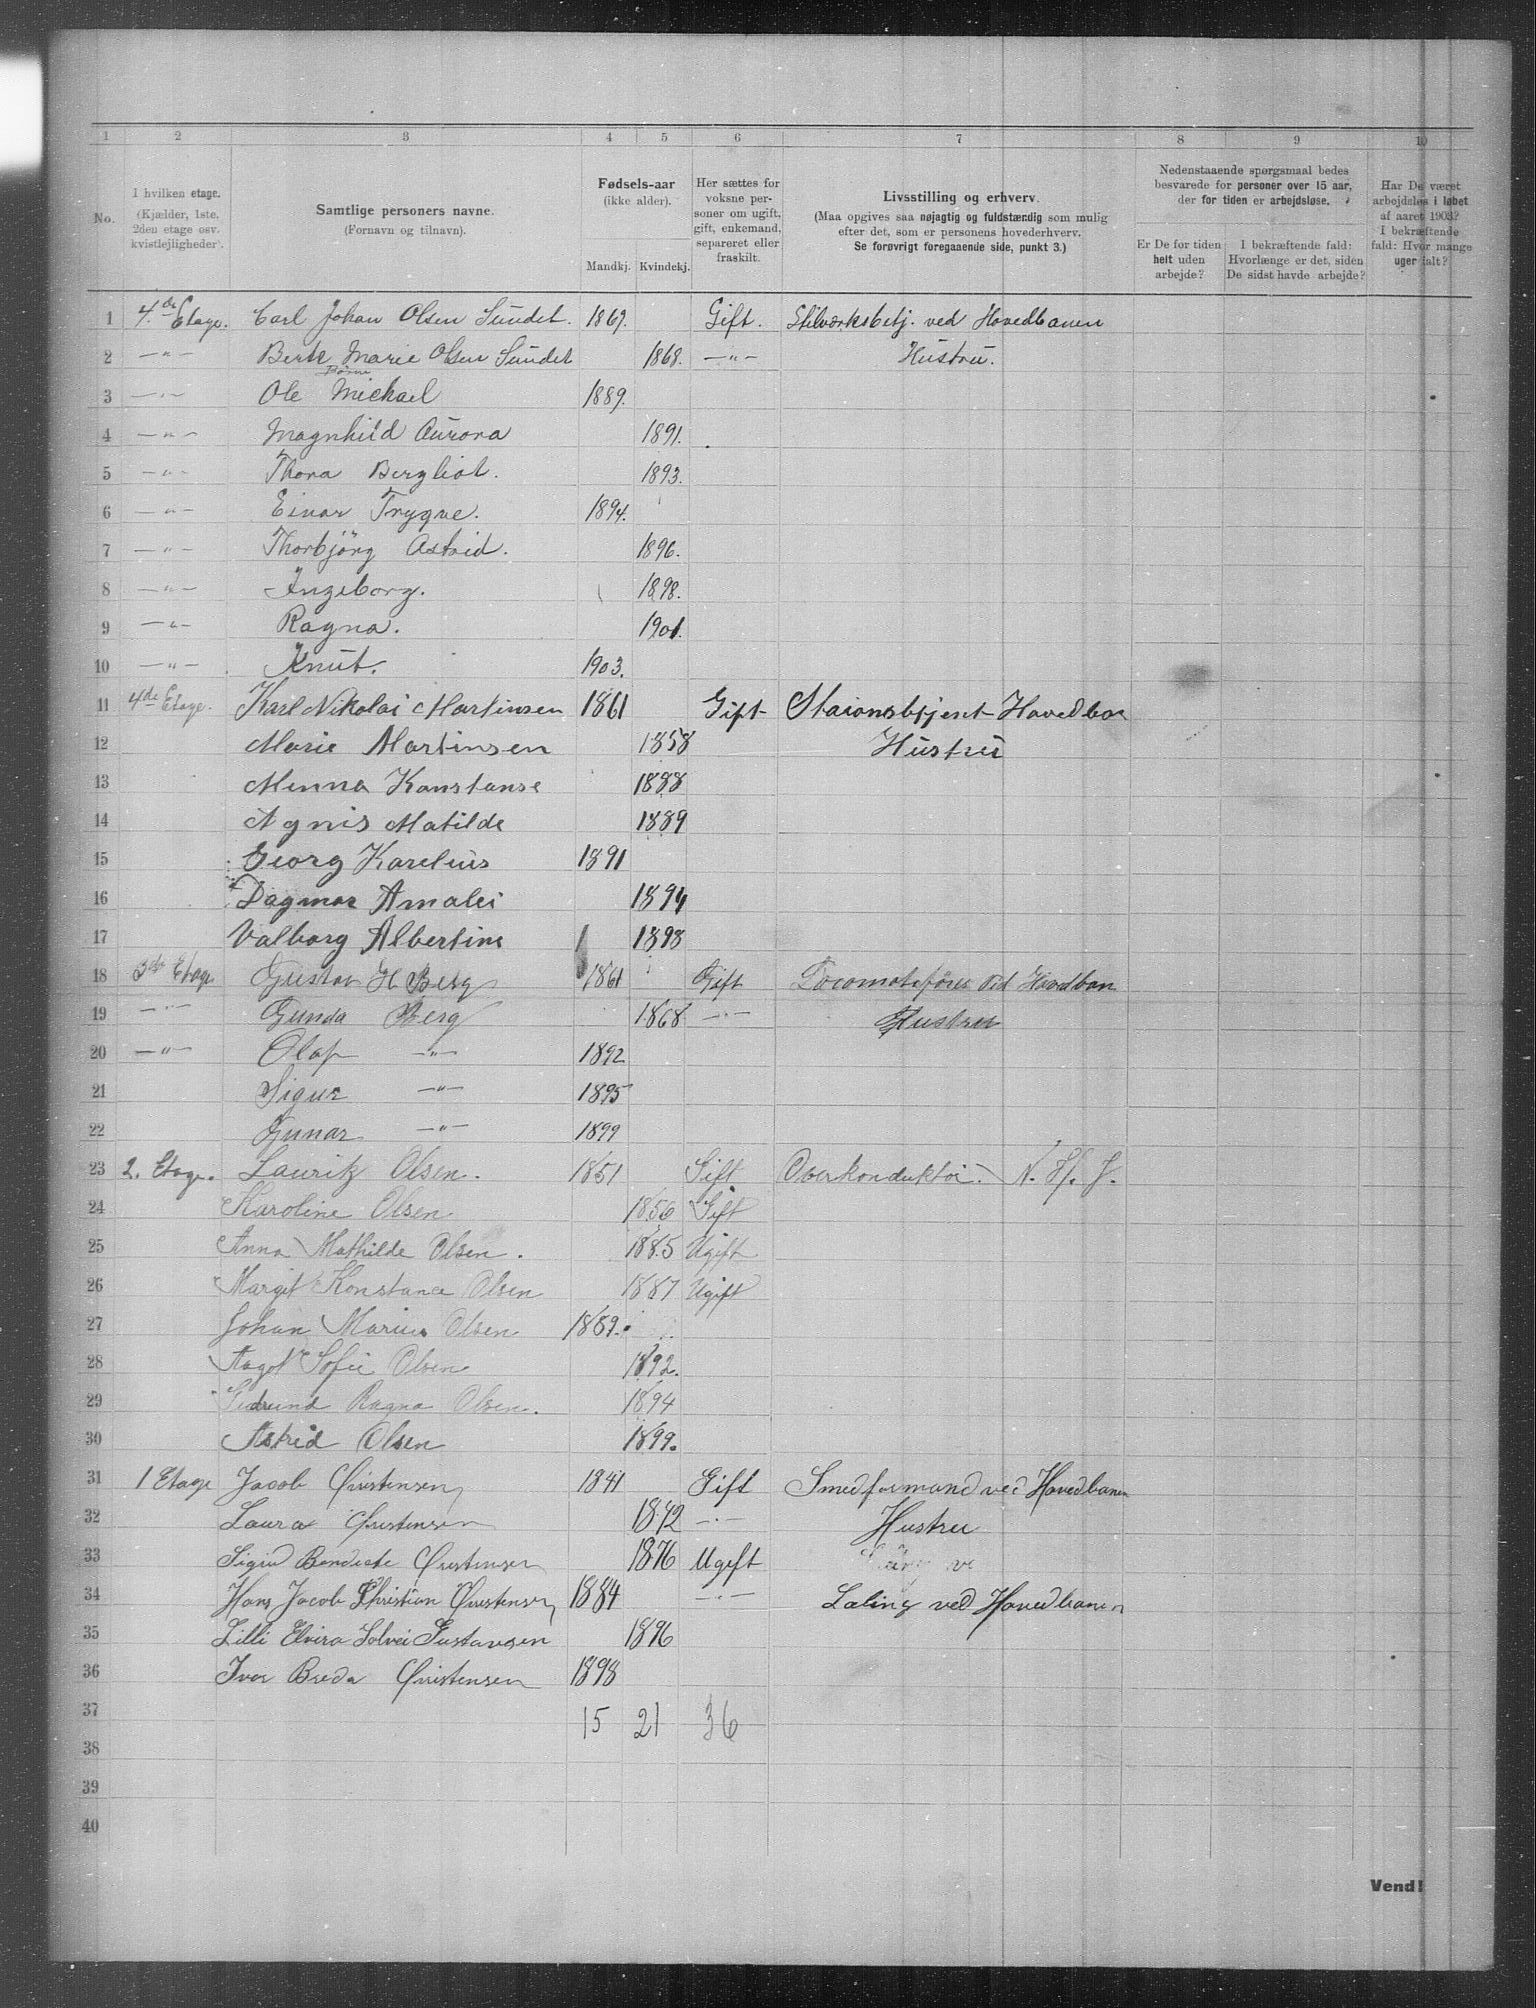 1 2 3 4 5 6 7 8 9 10
No.
I hvilken etage. (Kjælder, 1ste, 2den etage osv. kvistlejligheder).
Samtlige personers navne. (Fornavn og tilnavn).
Fødsels-aar (ikke alder). Mandkj. Kvindekj.
Her sættes for voksne personer om ugift, gift, enkemand, separeret eller fraskilt.
Livsstilling og erhverv. (Maa opgives saa nøjagtig og fuldstændig som mulig efter det, som er personens hovederhverv. Se forøvrigt foregaaende side, punkt 3.)
Nedenstaaende spørgsmaal bedes besvarede for personer over 15 aar, der for tiden er arbejdsløse.
Er De for tiden helt uden arbejde?
I bekræftende fald: Hvorlænge er det, siden De sidst havde arbejde?
Har De været arbejdsløs i løbet af aaret 1903? I bekræftende fald: Hvor mange uger ialt?
1 4.de Etage. Carl Johan Olsen Sundet. 1869. Gift. ved Hovedbanen
2 —"— Marie Olsen Sundet 1868. —"— Hustru.
Børn
3 —"— Ole Michael 1889.
4 —"— Magnhild Aurora 1891.
5 —"— Thora Bergliot. 1893.
6 —"— Einar Trygve. 1894.
7 —"— Thorbjörg Astrid. 1896.
8 —"— Ingeborg. 1898.
9 —"— Ragna. 1901.
10 —"— Knut. 1903.
11 4de Etage. Karl Nikolai Martinsen 1861 Gift Staionsbtjent Hovedba
12 Marie Martinsen 1858 Hustru
13 Menna Konstanse 1888
14 Agnis Matilde 1889
15 Georg Karelius 1891
16 Dagmar Amalei 1894
17 Valborg Albertine 1898
18 3de Etage Gustav H Berg 1861 Gift Locomotivförer ved Hovedban
19 —"— Gunda Berg 1868 —"— Hustru
20 —"— Olaf —"— 1892
21 Sigur —"— 1895
22 Gunar —"— 1899
23 2. Etage. Lauritz Olsen. 1851 Gift Overkonduktör. N. H. J.
24 Karoline Olsen 1856 Gift
25 Anna Mathilde Olsen. 1885 Ugift
26 Margit Konstance Olsen 1887 Ugift
27 Johan Marius Olsen 1889.
28 Aagot Sofie Olsen 1892.
29 Ragna Olsen. 1894
30 Astrid Olsen 1899.
31 1 Etage Jacob Christensen 1841 Gift Smedformand ved Hovedbanen
32 Laura Christensen 1842 —"— Hustru
33 Sigrid Bendicte Christensen 1876 Ugift
34 Hans Jacob Christian Christensen 1884 —"— Laling ved Hovedbanen
35 Lilli Elvira Solvei Gustavsen 1896
36 Ivar Breda Christensen 1898
37 15 21 36
38
39
40
Vend!